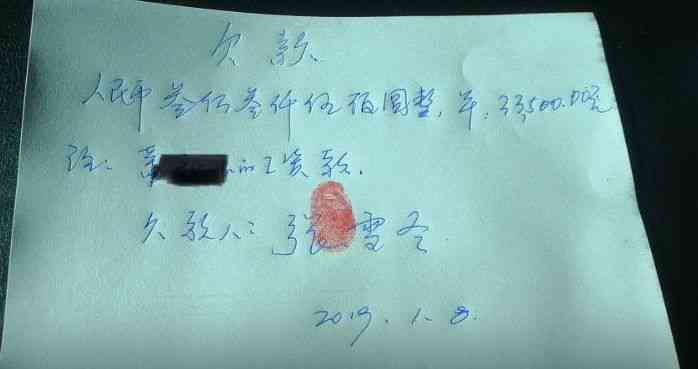 欠款
人民币叁仟叁仟伍佰圆整,¥:33500.00元
注: 的工资款.
欠款人:张雪冬
2019.1.8.